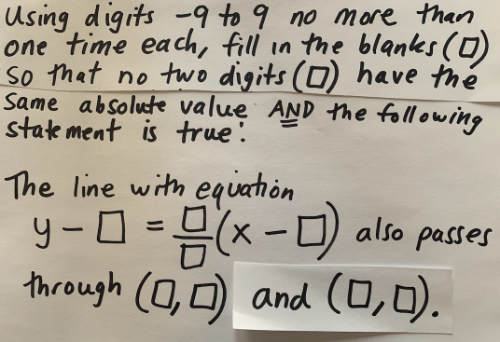 Using digits -9 to 9 no more than
one time each, fill in the blanks (□)
so that no two digits (□) have the
same absolute value AND the following
statement is true:
The line with equation
y - □ = □/□ (x - □) also passes
through (□,□) and (□,□).